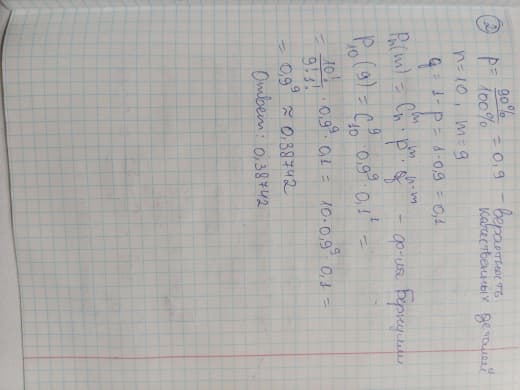 ② p = 90%/100% = 0,9 - вероятность
качественных деталей
n = 10, m = 9
q = 1 - p = 1 - 0,9 = 0,1
Pₙ(m) = Cₙᵐ · pᵐ · qⁿ⁻ᵐ - ф-ла Бернулли
P₁₀(9) = C₁₀⁹ · 0,9⁹ · 0,1¹ =
= 10!/9!1! · 0,9⁹ · 0,1 = 10 · 0,9⁹ · 0,1 =
= 0,9⁹ ≈ 0,38742
Ответ: 0,38742